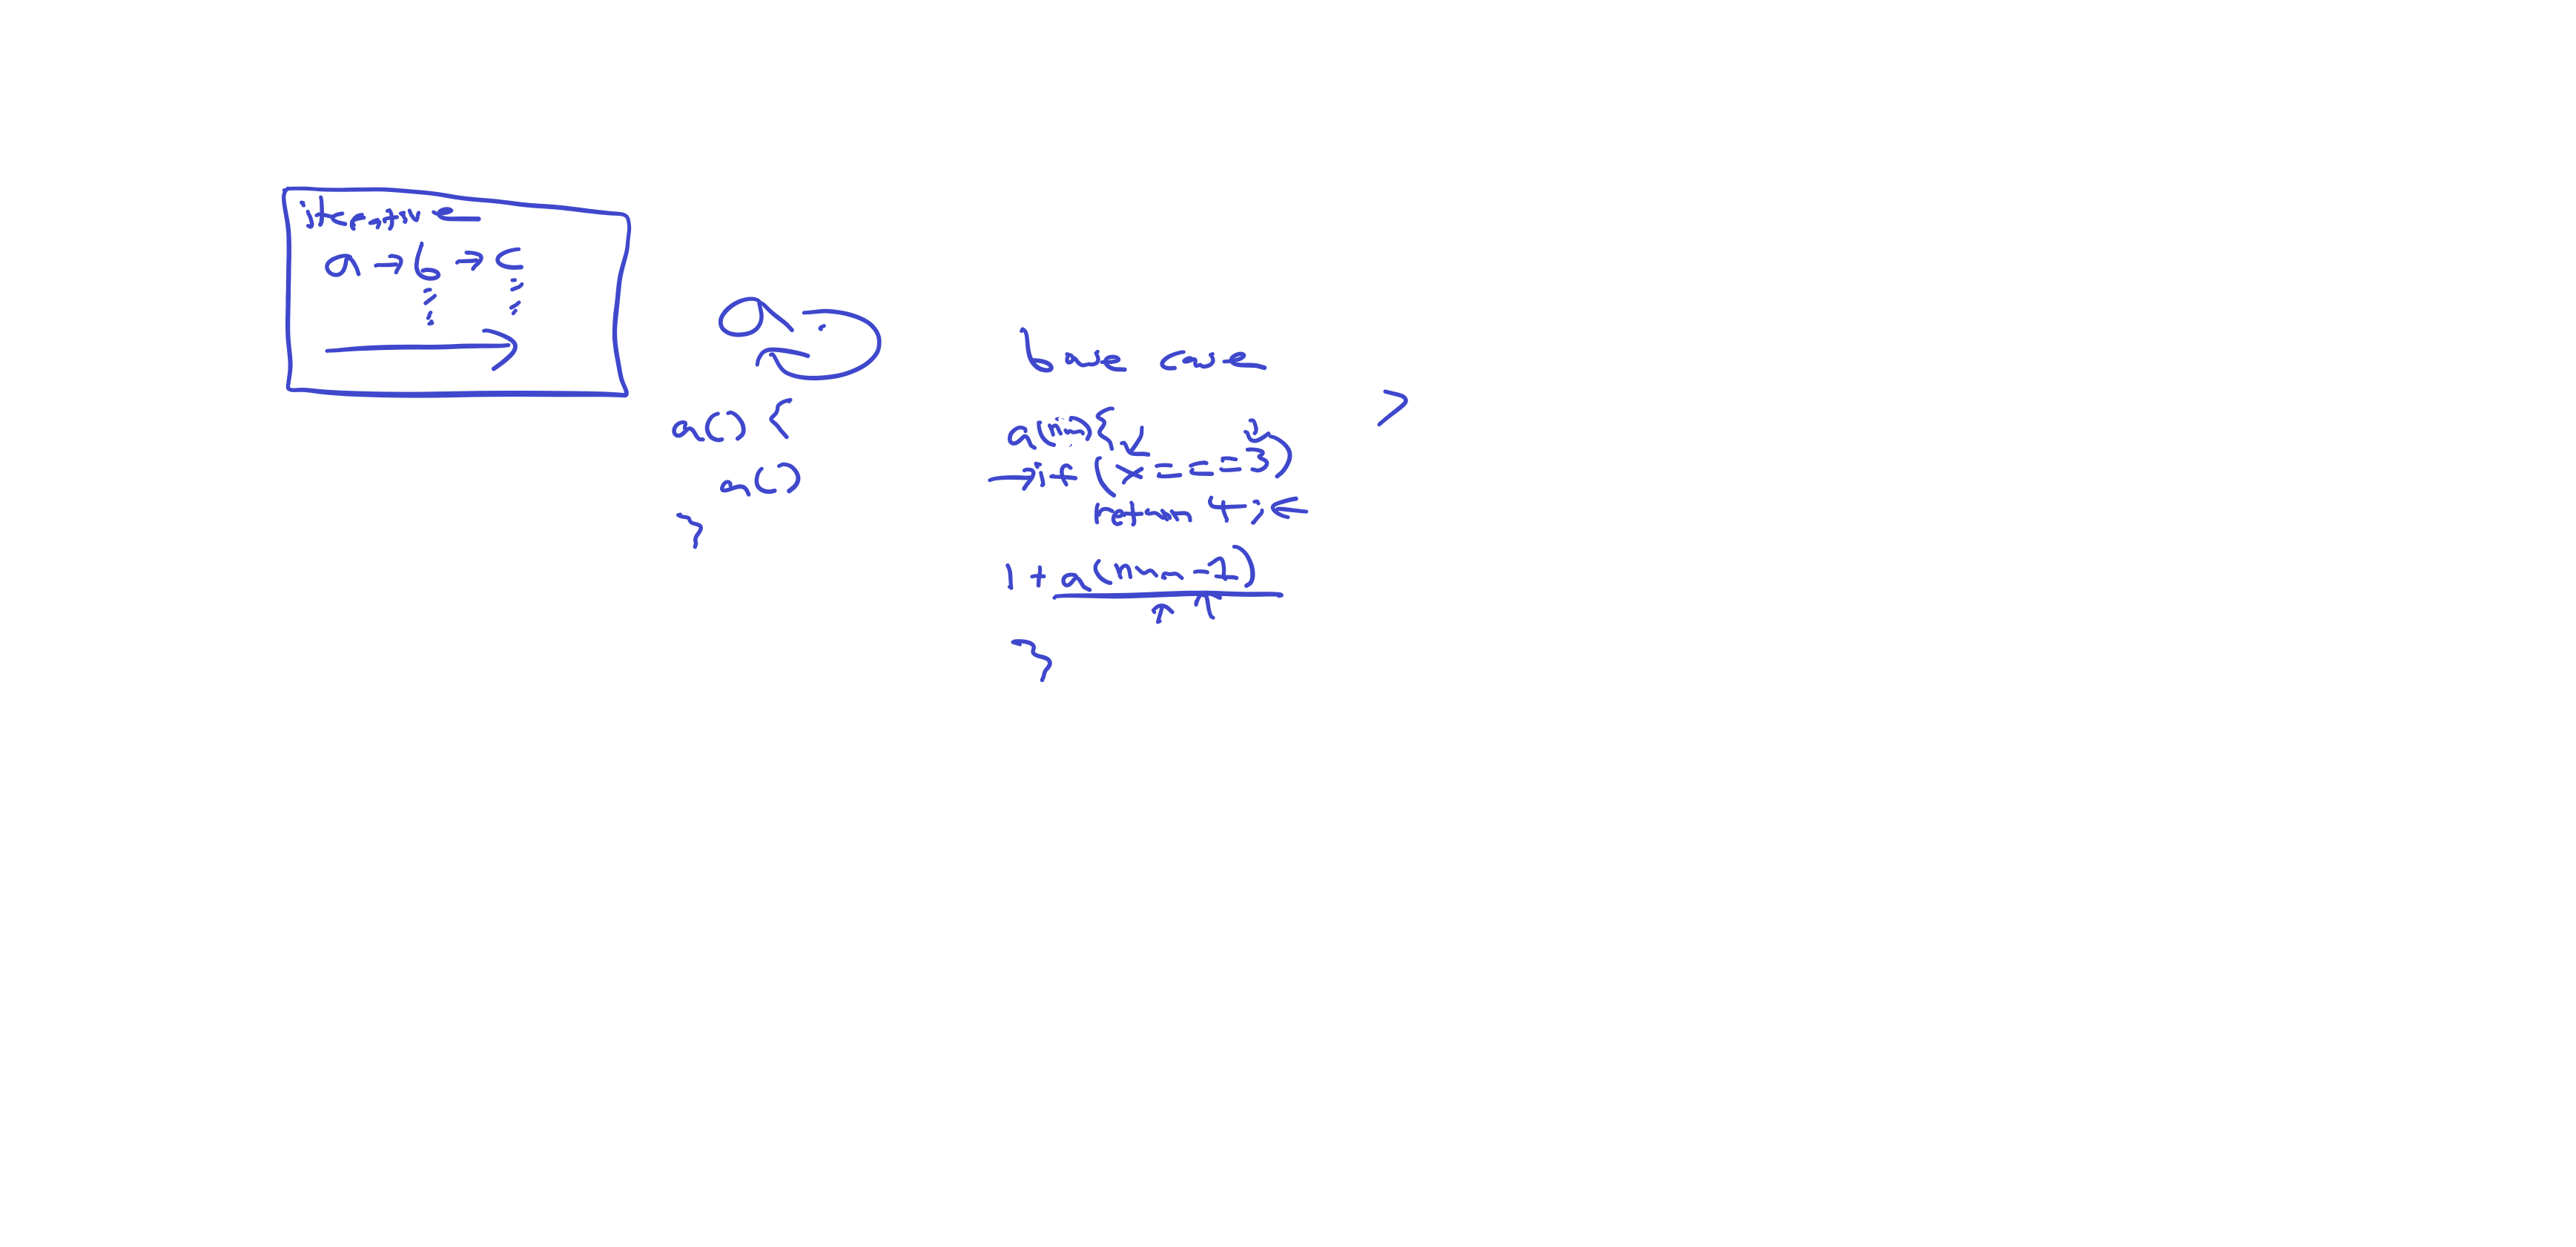 iterative
a → b → c
a
a() {
a()
}
base case
a(num) {
→ if (x === 3)
return 4; ←
1 + a(num - 1)
}
>